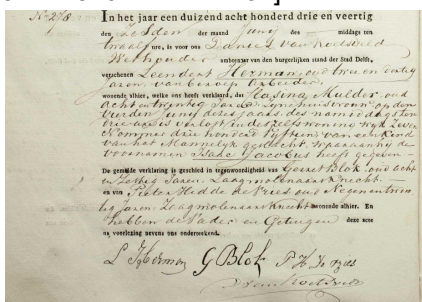 No 278
In het jaar een duizend acht honderd drie en veertig
den Zesden der maand Junij des middags ten
twaalf ure, is voor ons Daniel van Koetsveld
Wethouder ambtenaar van den burgerlijken stand der Stad Delft,
verschenen Leendert Herman, oud twee en dertig
Jaren van beroep Arbeider
wonende alhier, welke ons heeft verklaard, dat Klasina Mulder, oud
Acht en twintig Jaren, Zijne huisvrouw, op den
vierden Junij dezes Jaars, des namiddags ten
drie ure is verlost in deszelfs woning Wijk Zeven
Nommer drie honderd Vijftien van een kind
van het Mannelijk geslacht, waaraan hij de
voornamen Izaak Jacobus heeft gegeven
De gemelde verklaring is geschied in tegenwoordigheid van Gerrit Blok, oud acht
en Zestig Jaren Zaagmolenaarsknecht
en van Pieter Hedde de Vries oud Negenentwin
tig Jaren Zaagmolenaarsknecht wonende alhier. En
hebben de Vader en Getuigen deze acte
na voorlezing nevens ons onderteekend.
L Herman G Blok P H de Vries
D van Koetsveld